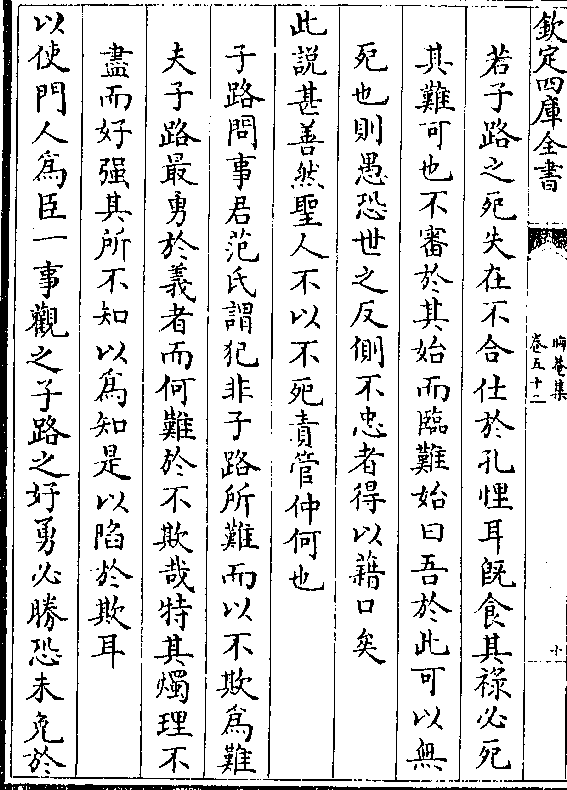 欽定四庫全書
晦菴集
卷五十二
十
若子路之死失在不合仕於孔悝耳既食其祿必死
其難可也不審於其始而臨難始曰吾於此可以無
死也則愚恐世之反側不忠者得以藉口矣
此說甚善然聖人不以不死責管仲何也
子路問事君范氏謂犯非子路所難而以不欺為難
夫子路最勇於義者而何難於不欺哉特其燭理不
盡而好强其所不知以為知是以陷於欺耳
以使門人為臣一事觀之子路之好勇必勝恐未免於